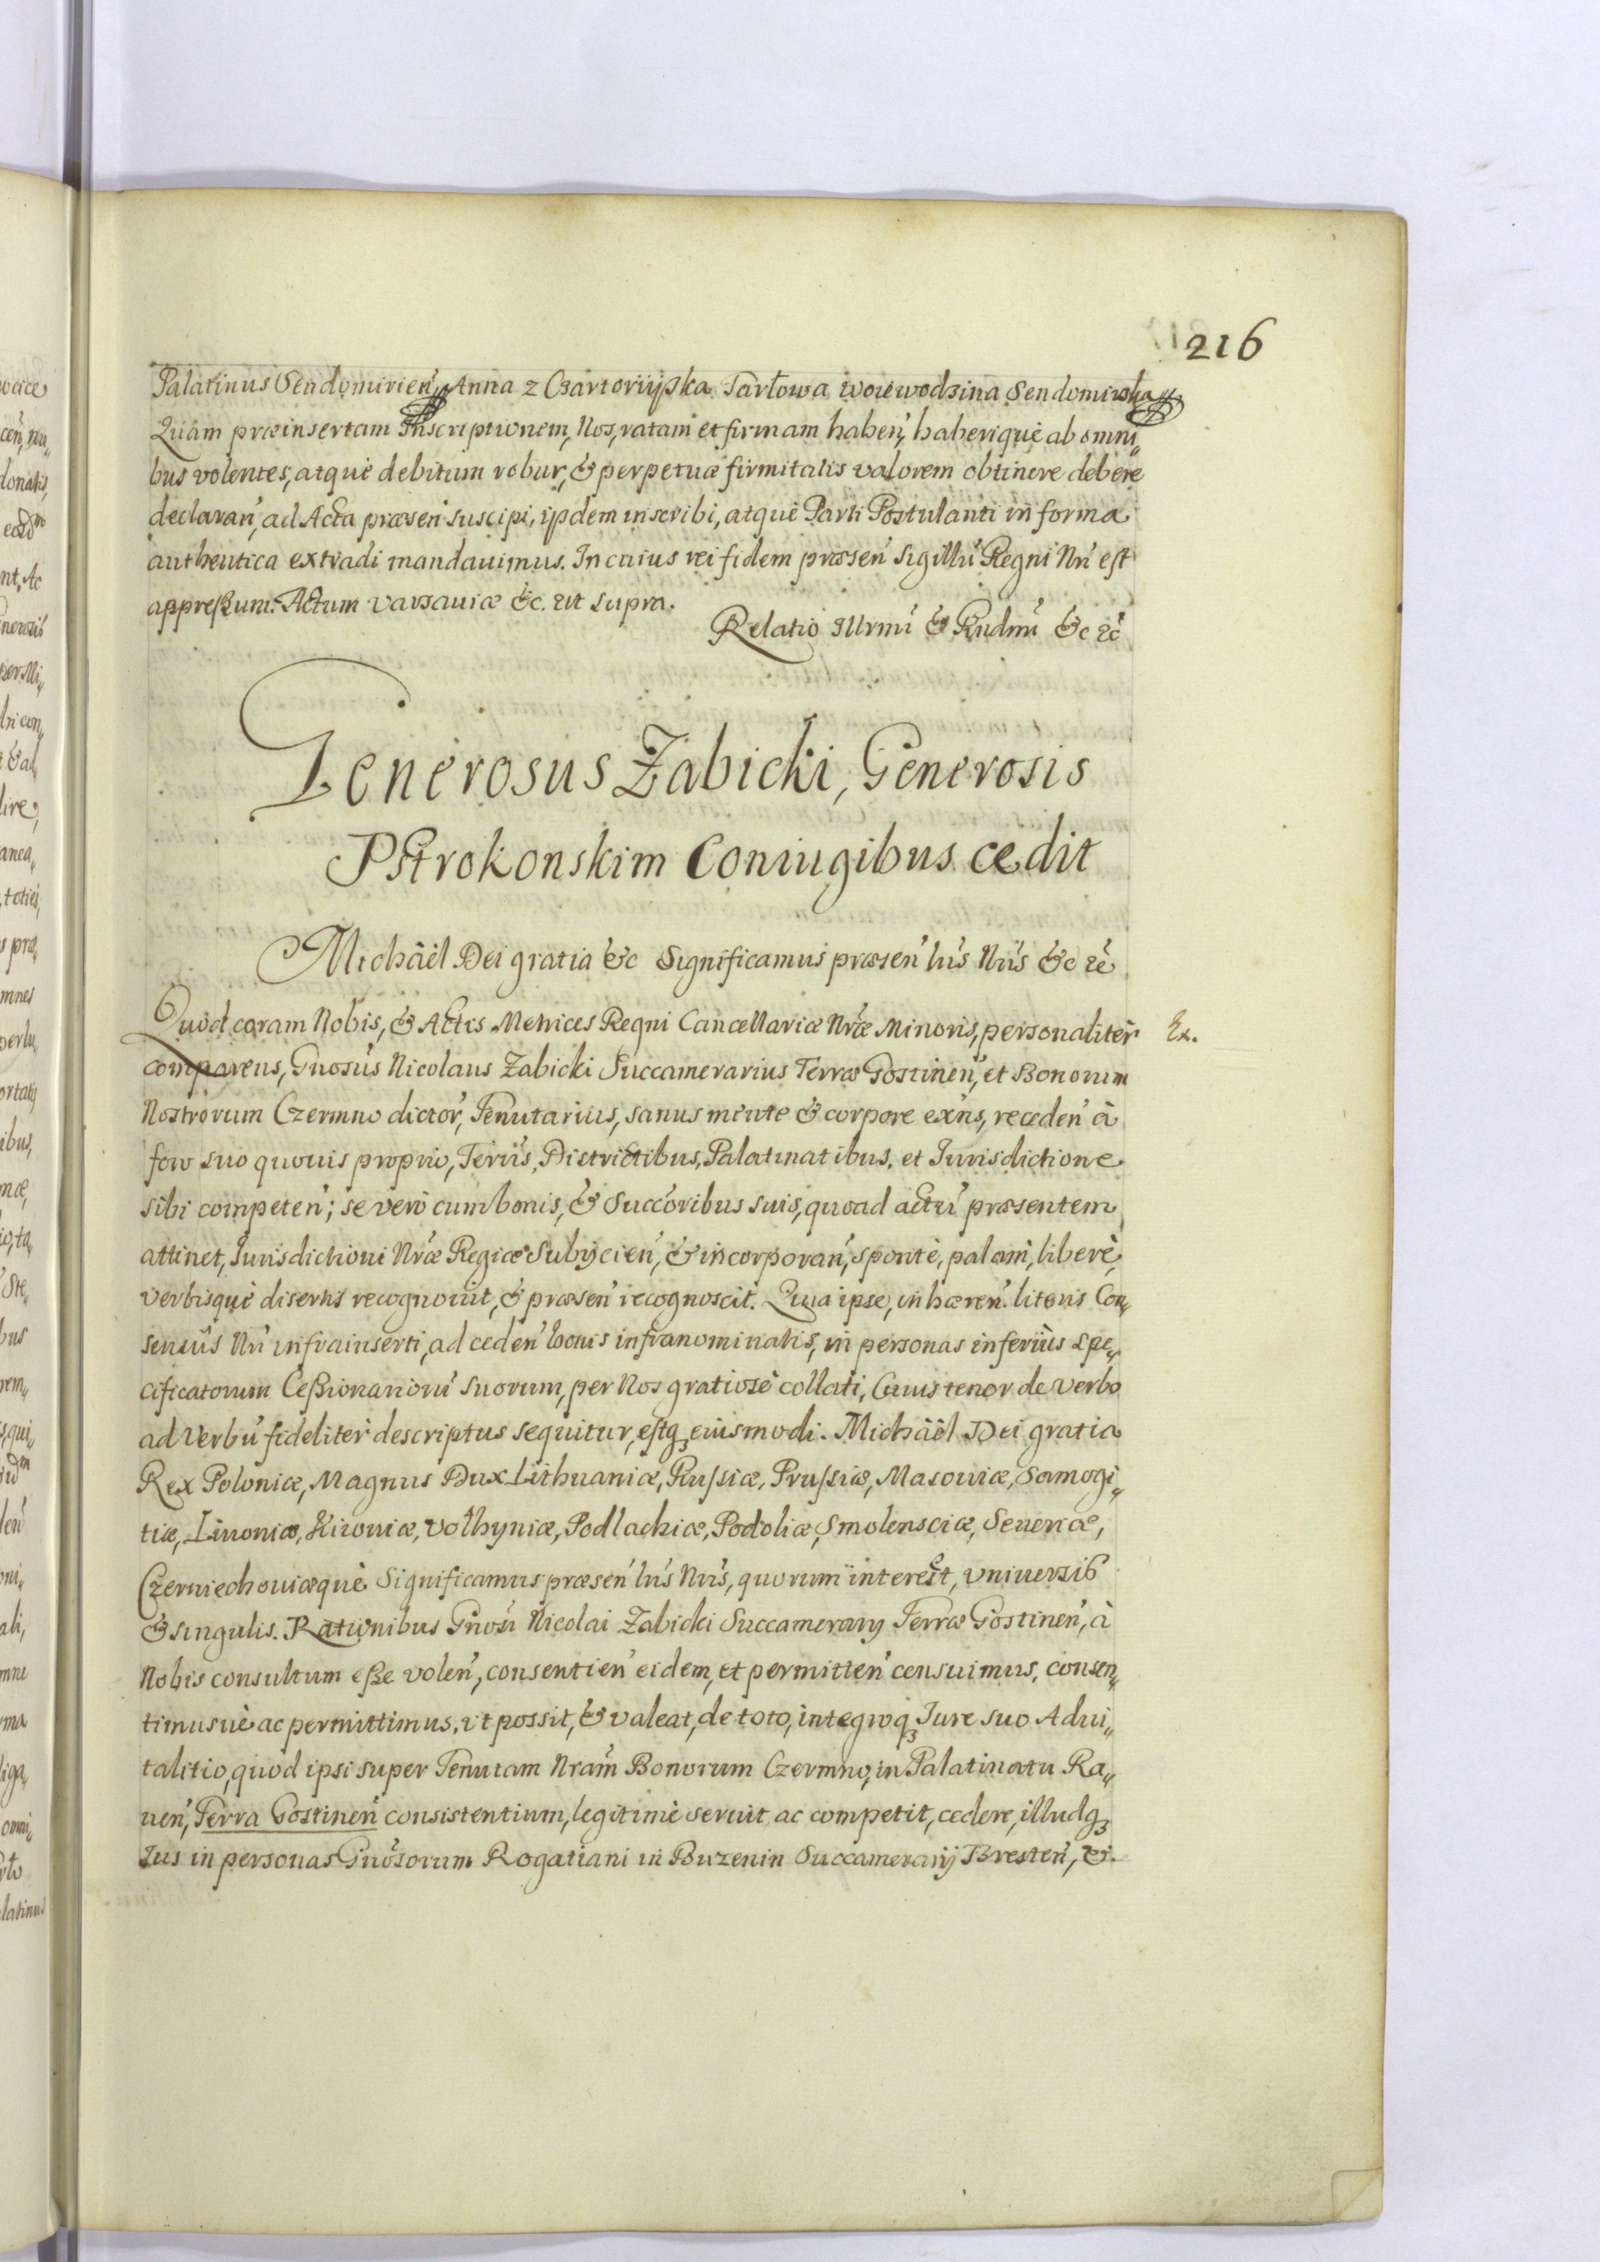 216
Palatinus Sendomirien̄, Anna z Czartoriyska Tarłowa woiewodzina Sendomirska
Quàm præinsertam Inscriptionem, Nos, ratam et firmam haben̄, haberiquè ab omni„
bus volentes, atquè debitum robur, & perpetuæ firmitatis valorem obtinere debere
declaran̄, ad Acta præsen̄ suscipi, ijsdem inscribi, atquè Parti Postulanti in forma
authentica extradi mandauimus. In cuius rei fidem præsen̄ Sigillū Regni Nr̄i est
appreßum. Actum varsauiæ &c. ut supra.
Relatio Illrmi & Rndmi &c &c
Generosus Zabicki, Generosis
Pstrokonskim Coniugibus cedit
Michäel Dei gratia &c Significamus præsen̄ lr̄is Nr̄is &c &c
Quod coram Nobis, & Actis Metrices Regni Cancellariæ Nr̄æ Minoris, personalitèr
Ex.
comparens, Gnosus Nicolaus Zabicki Succamerarius Terræ Gostinen̄, et Bonorum
Nostrorum Czermno dictor̄, Tenutarius, sanus mente & corpore exn̄s, receden̄ à
foro suo quouis proprio, Terris, Districtibus, Palatinatibus, et Iurisdictione
sibi competen̄; se verò cum bonis, & Succoribus suis, quoad actū præsentem
attinet, Iurisdictioni Nr̄æ Regiæ Subijcien̄, & incorporan̄, spontè, palam, liberè,
verbisquè disertis recognouit, & præsen̄ recognoscit. Quia ipse, inhæren̄ literis Con„
sensûs Nr̄i infrainserti, ad ceden̄ bonis infranominatis, in personas inferiùs spe„
cificatorum Ceßionariorū suorum, per Nos gratiosè collati, Cuius tenor de verbo
ad Verbū fidelitèr descriptus sequitur, estq; eiusmodi. Michäêl Dei gratia
Rex Poloniæ, Magnus Dux Lithuaniæ, Russiæ, Prussiæ, Masouiæ, Samogi„
tiæ, Liuoniæ, Kiiouiæ, Volhyniæ, Podlachiæ, Podoliæ, Smolensciæ, Seueriæ,
Czerniechouiæquè Significamus præsen̄ lr̄is Nr̄is, quorum interest, vniuersis
& singulis. Rationibus Gnosi Nicolai Zabicki Succamerarij Terræ Gostinen̄, à
Nobis consultum eße volen̄, consentien̄ eidem, et permitten̄ censuimus, consen„
timusuè ac permittimus, vt possit, & valeat, de toto, integroq; Iure suo Adui„
talitio, quod ipsi super Tenutam Nram̄ Bonorum Czermno, in Palatinatu Ra„
uen̄, Terra Gostinen̄ consistentium, legitimè seruit ac competit, cedere, illudq;
Ius in personas Gnosorum Rogatiani in Buzenin Succamerarij Bresten̄, &.